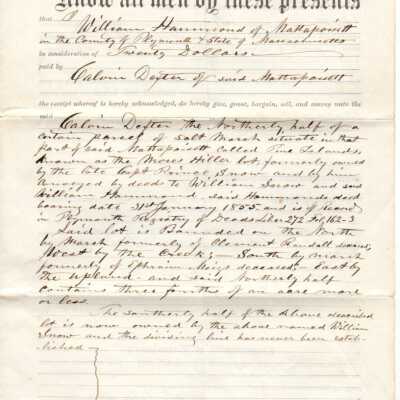 Know all men by these presents
that I William Hammond of Mattapoisett
in the County of Plymouth & State of Massachusetts
in consideration of Twenty Dollars
paid by
Calvin Dexter of said Mattapoisett
the receipt whereof is hereby acknowledged, do hereby give, grant, bargain, sell, and convey unto the
said
Calvin Dexter the Northerly half of a
certain parcel of Salt Marsh situate in that
part of said Mattapoisett called Pine Islands
known as the Moses Hiller lot, formerly owned
by the late Capt Prince Snow and by him
conveyed by deeds to William Snow and said
William Hammond, said Hammonds deed
bearing date January and is of Record
in Plymouth Registry of Deeds Liber 272 Fol, 162-3
Said lot is Bounded on the North
by Marsh formerly of Clement Randall deceased,
West by the Creek; South by marsh
formerly of Ephraim Meigs deceased; East by
the upland and said Northerly half
contains three fourths of an acre more
or less.
The Southerly half of the above described
lot is now owned by the above named William
Snow and the dividing line has never been estab-
lished